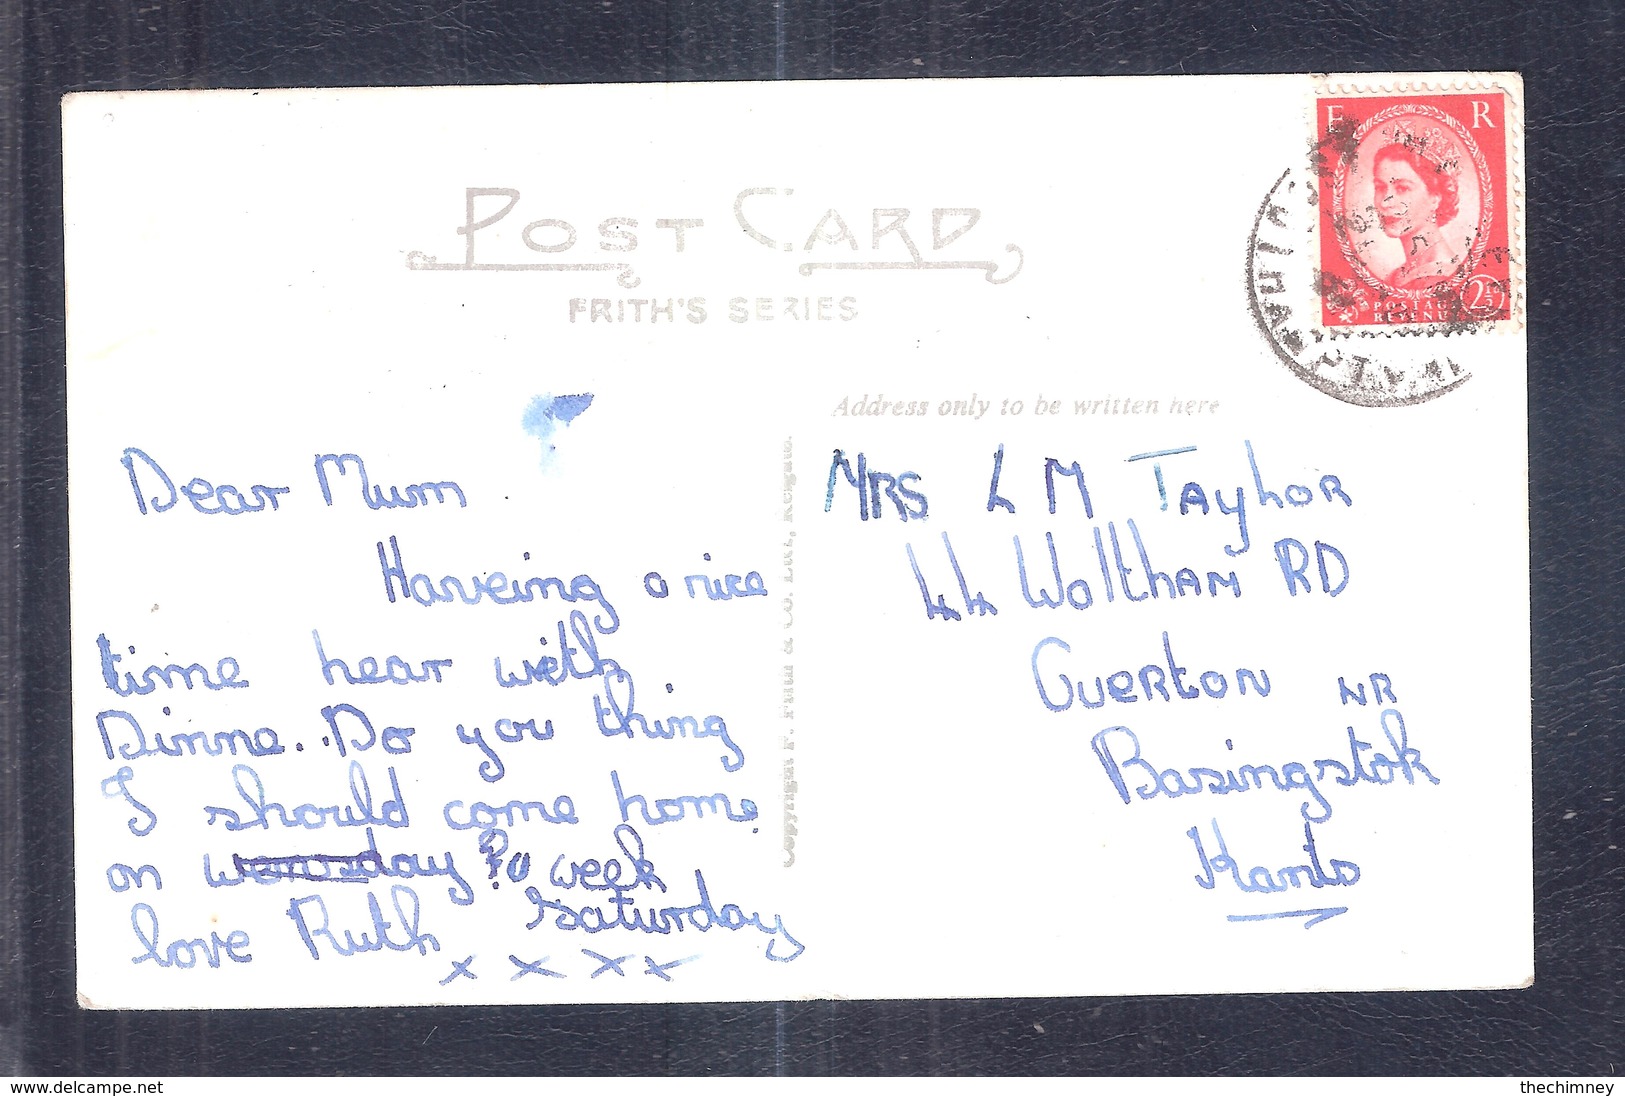 POST CARD
FRITH'S SERIES
E R
POSTAGE
REVENUE
2½D
Address only to be written here
Dear Mum
Harveing a nice
time hear with
Dinne.. Do you thing
I should come home
on day ? week
Saturday
love Ruth
x x x x
Copyright F. Frith & Co. Ltd., Reigate.
Mrs L M Taylor
44 Waltham RD
Overton NR
Basingstok
Hants
www.delcampe.net
thechimney